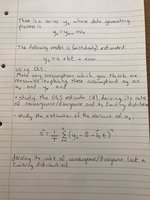 There is a series yt whose data generating
process is
yt = yt-1 + ut
The following model is (mistakenly) estimated
yt = a + bt + error
using OLS.
Make any assumptions which you think are
reasonable (explaining those assumptions) eg. on
ut and y0 and
• study the OLS estimator (b̂), deriving its rate
of convergence/divergence and its limiting distribution
• study the estimator of the variance of ut.
σ̂² = 1/T Σ (yt - â - b̂t)²
deriving its rate of convergence/divergence (not a
limiting distribution).